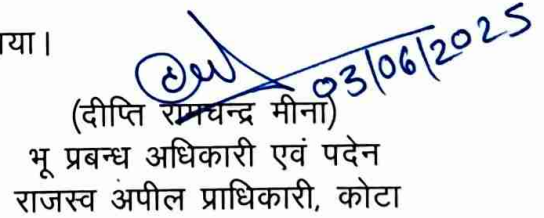 या।
03/06/2025
(दीप्ति रामचन्द्र मीना)
भू प्रबन्ध अधिकारी एवं पदेन
राजस्व अपील प्राधिकारी, कोटा